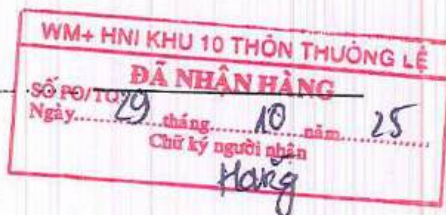 WM+ HNI KHU 10 THÔN THƯỜNG LỆ
ĐÃ NHẬN HÀNG
SỐ PO/TO
Ngày 29 tháng 10 năm 25
Chữ ký người nhận
Hằng